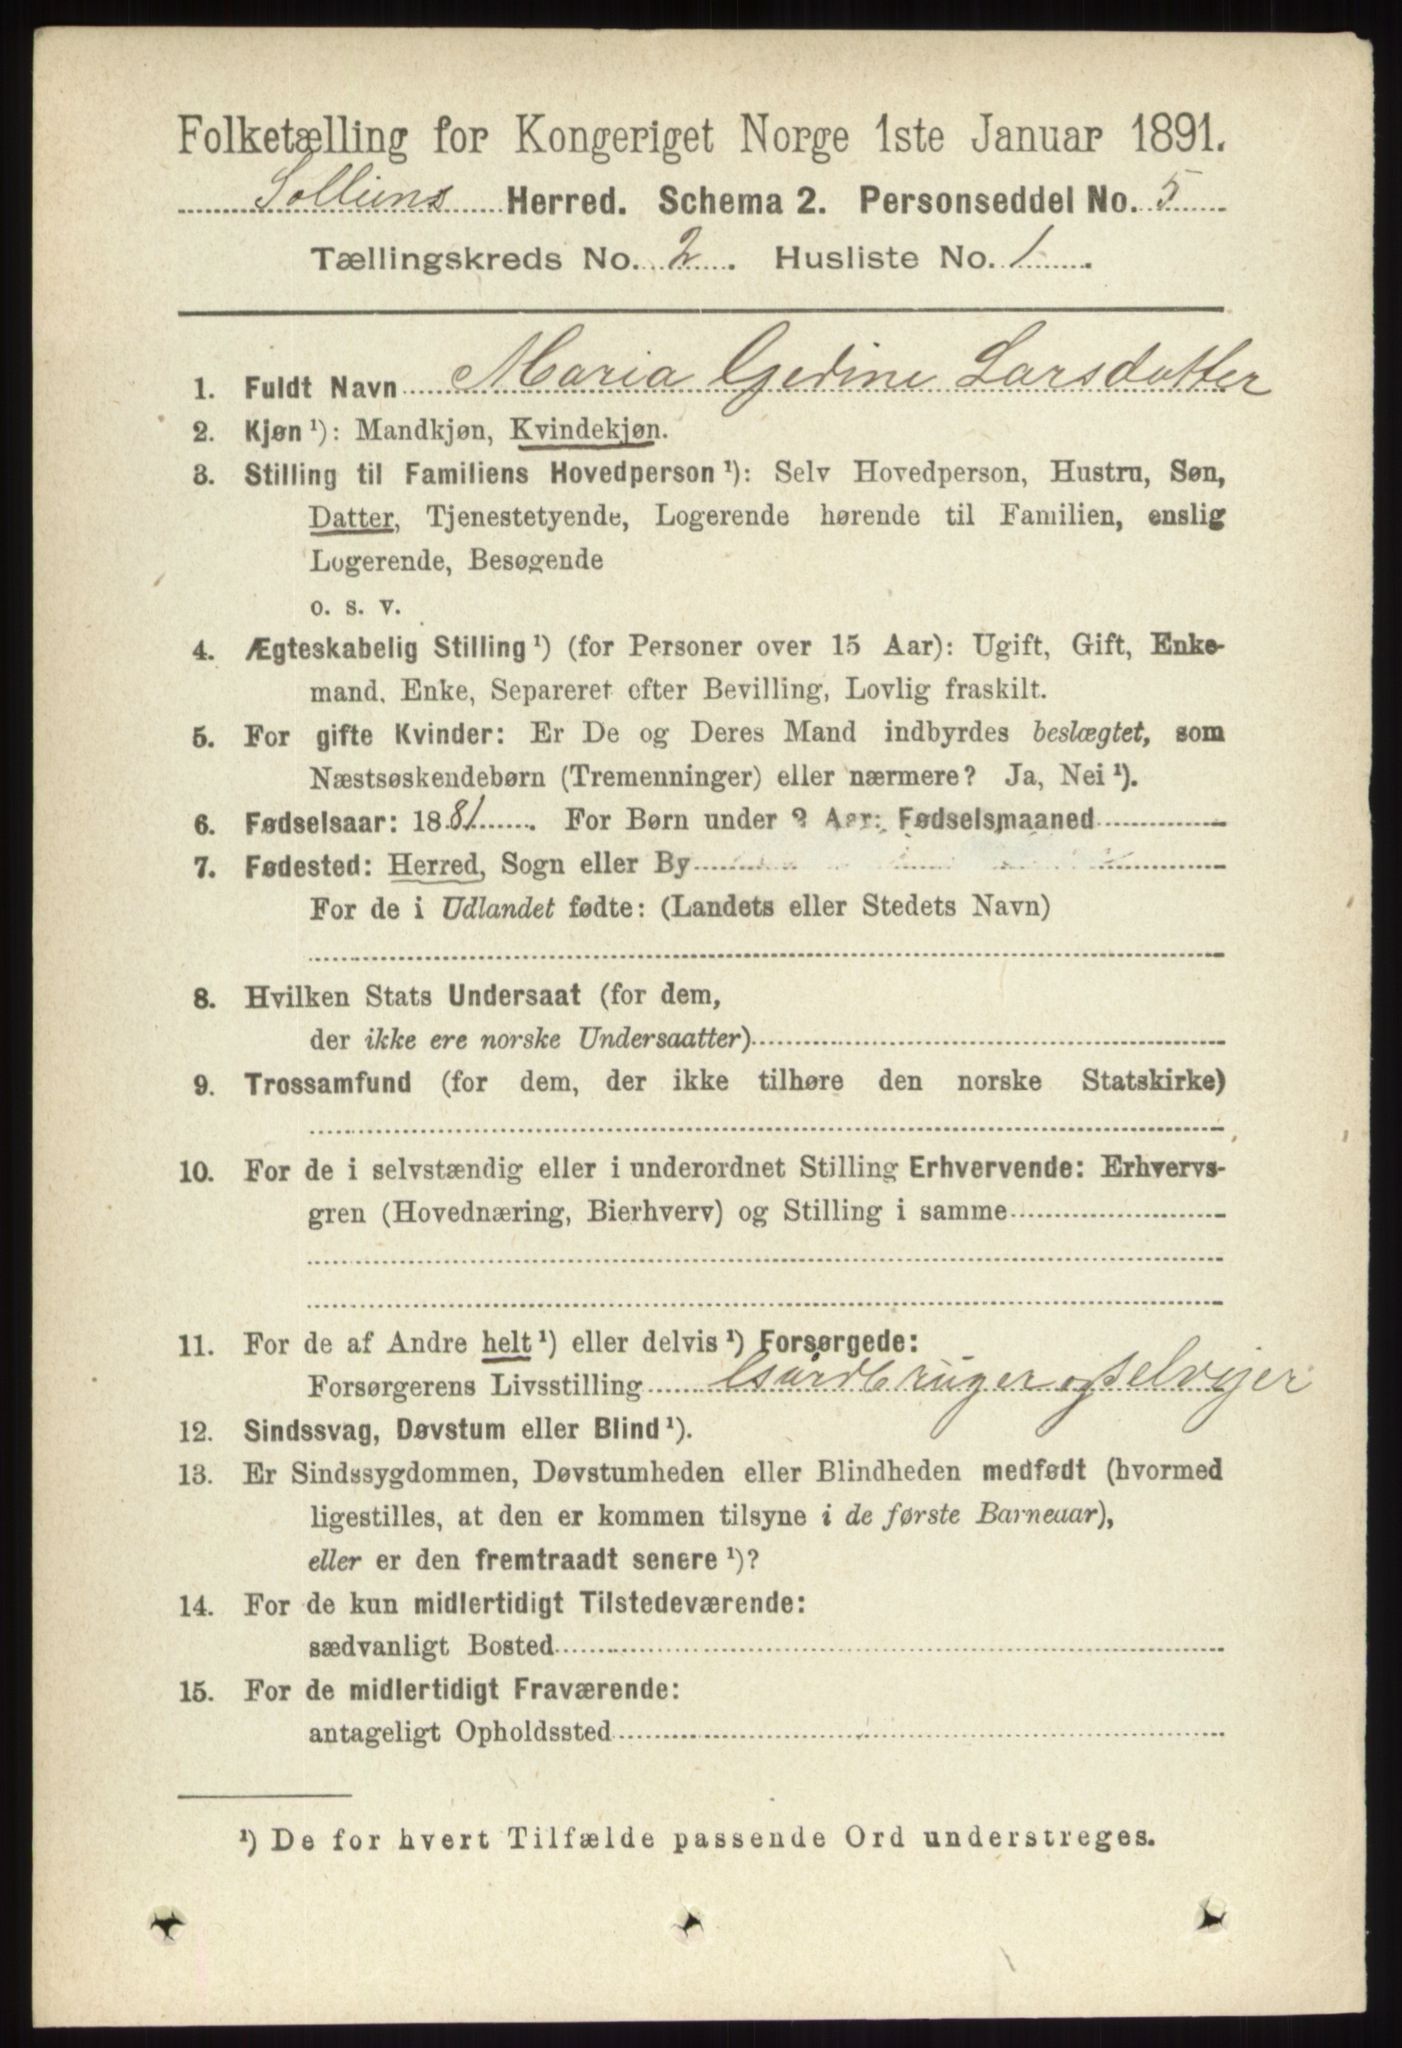 Folketælling for Kongeriget Norge 1ste Januar 1891.
Solliens Herred. Schema 2. Personseddel No. 5
Tællingskreds No. 2. Husliste No. 1.
1. Fuldt Navn Maria Gedine Larsdatter
2. Kjøn ¹): Mandkjøn, Kvindekjøn.
3. Stilling til Familiens Hovedperson ¹): Selv Hovedperson, Hustru, Søn,
Datter, Tjenestetyende, Logerende hørende til Familien, enslig
Logerende, Besøgende
o. s. v.
4. Ægteskabelig Stilling ¹) (for Personer over 15 Aar): Ugift, Gift, Enke-
mand, Enke, Separeret efter Bevilling, Lovlig fraskilt.
5. For gifte Kvinder: Er De og Deres Mand indbyrdes beslægtet, som
Næstsøskendebørn (Tremenninger) eller nærmere? Ja, Nei ¹).
6. Fødselsaar: 1881. For Børn under 2 Aar: Fødselsmaaned
7. Fødested: Herred, Sogn eller By
For de i Udlandet fødte: (Landets eller Stedets Navn)
8. Hvilken Stats Undersaat (for dem,
der ikke ere norske Undersaatter)
9. Trossamfund (for dem, der ikke tilhøre den norske Statskirke)
10. For de i selvstændig eller i underordnet Stilling Erhvervende: Erhvervs-
gren (Hovednæring, Bierhverv) og Stilling i samme
11. For de af Andre helt ¹) eller delvis ¹) Forsørgede:
Forsørgerens Livsstilling Gårdbruger og selvejer
12. Sindssvag, Døvstum eller Blind ¹).
13. Er Sindssygdommen, Døvstumheden eller Blindheden medfødt (hvormed
ligestilles, at den er kommen tilsyne i de første Barneaar),
eller er den fremtraadt senere ¹)?
14. For de kun midlertidigt Tilstedeværende:
sædvanligt Bosted
15. For de midlertidigt Fraværende:
antageligt Opholdssted
¹) De for hvert Tilfælde passende Ord understreges.